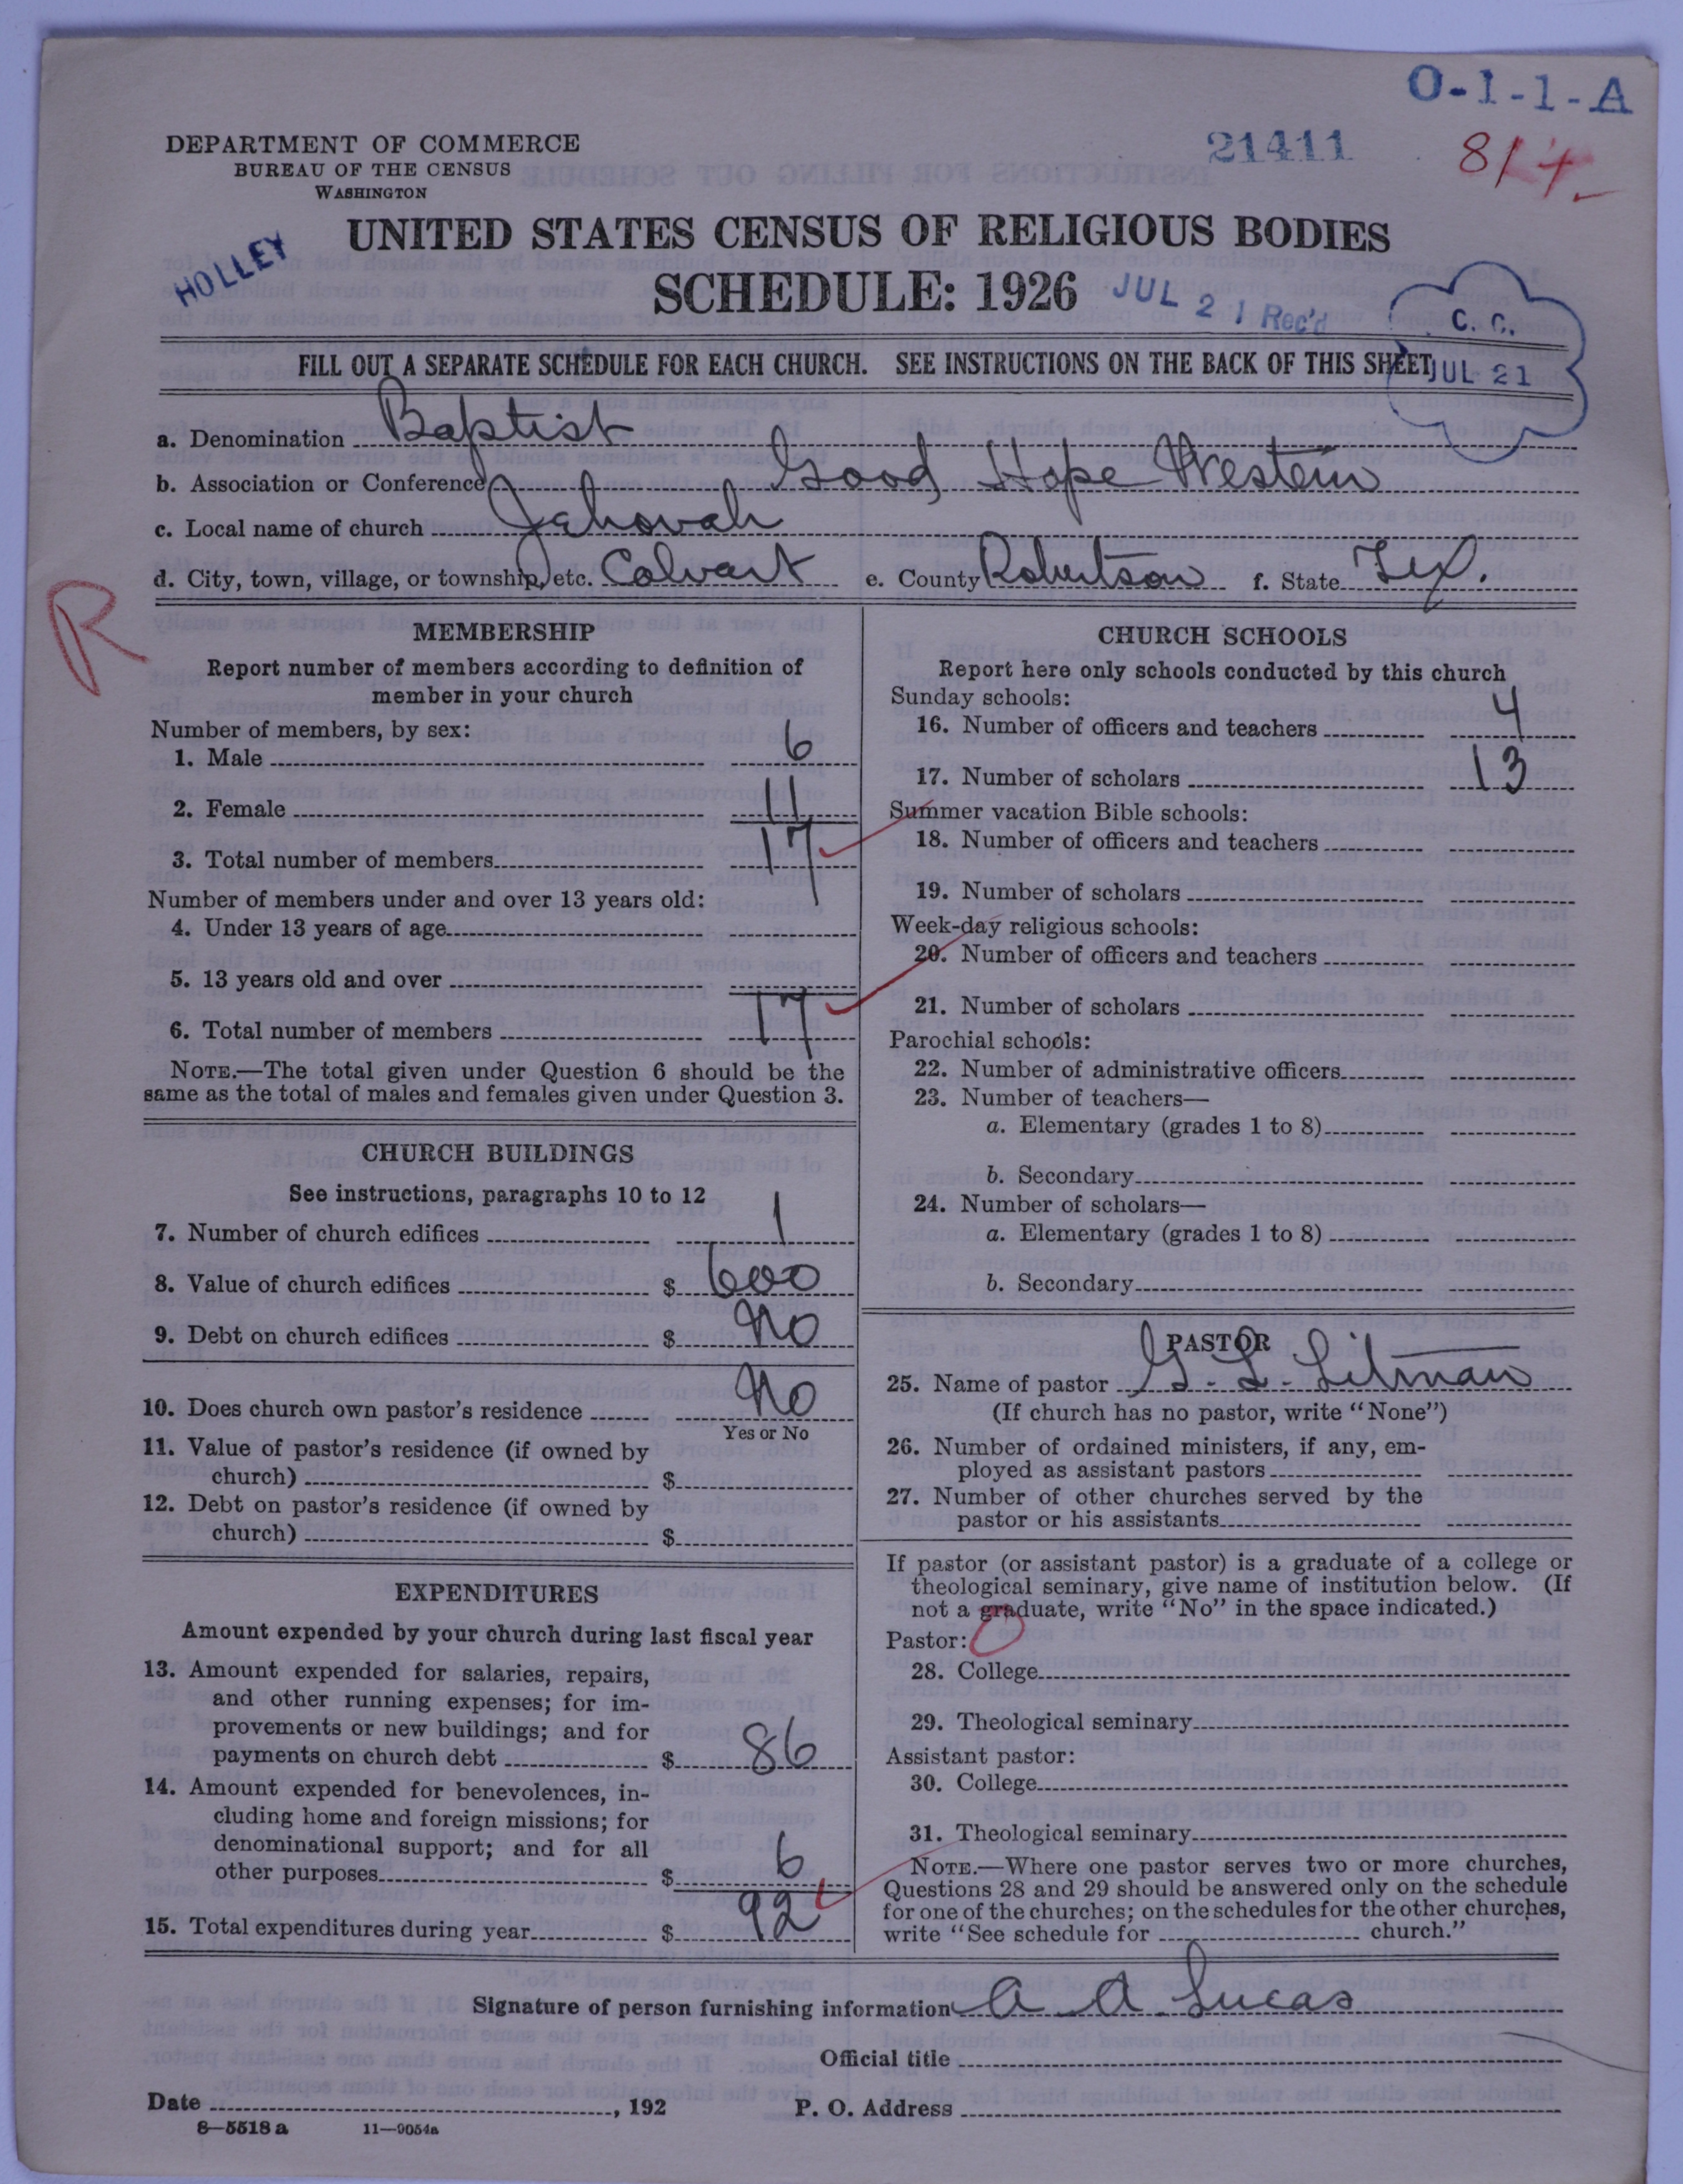 O-1-1-A
21411
8/4
DEPARTMENT OF COMMERCE
BUREAU OF THE CENSUS
WASHINGTON
HOLLEY
UNITED STATES CENSUS OF RELIGIOUS BODIES
SCHEDULE: 1926
JUL 21 Rec'd
C. C.
JUL 21
FILL OUT A SEPARATE SCHEDULE FOR EACH CHURCH. SEE INSTRUCTIONS ON THE BACK OF THIS SHEET
a. Denomination Baptist
b. Association or Conference Good Hope Western
c. Local name of church Jehovah
d. City, town, village, or township, etc. Calvart e. County Robertson f. State Tex.
R
MEMBERSHIP
Report number of members according to definition of
member in your church
Number of members, by sex:
1. Male 6
2. Female 11
3. Total number of members 17
Number of members under and over 13 years old:
4. Under 13 years of age
5. 13 years old and over
6. Total number of members 17
NOTE.—The total given under Question 6 should be the
same as the total of males and females given under Question 3.
CHURCH BUILDINGS
See instructions, paragraphs 10 to 12
7. Number of church edifices 1
8. Value of church edifices $ 600
9. Debt on church edifices $ No
10. Does church own pastor's residence No
Yes or No
11. Value of pastor's residence (if owned by
church) $
12. Debt on pastor's residence (if owned by
church) $
EXPENDITURES
Amount expended by your church during last fiscal year
13. Amount expended for salaries, repairs,
and other running expenses; for im-
provements or new buildings; and for
payments on church debt $ 86
14. Amount expended for benevolences, in-
cluding home and foreign missions; for
denominational support; and for all
other purposes $ 6
15. Total expenditures during year $ 92
CHURCH SCHOOLS
Report here only schools conducted by this church
Sunday schools:
16. Number of officers and teachers 4
17. Number of scholars 13
Summer vacation Bible schools:
18. Number of officers and teachers
19. Number of scholars
Week-day religious schools:
20. Number of officers and teachers
21. Number of scholars
Parochial schools:
22. Number of administrative officers
23. Number of teachers—
a. Elementary (grades 1 to 8)
b. Secondary
24. Number of scholars—
a. Elementary (grades 1 to 8)
b. Secondary
PASTOR
25. Name of pastor G. L. Litman
(If church has no pastor, write "None")
26. Number of ordained ministers, if any, em-
ployed as assistant pastors
27. Number of other churches served by the
pastor or his assistants
If pastor (or assistant pastor) is a graduate of a college or
theological seminary, give name of institution below. (If
not a graduate, write "No" in the space indicated.)
Pastor: 0
28. College
29. Theological seminary
Assistant pastor:
30. College
31. Theological seminary
NOTE.—Where one pastor serves two or more churches,
Questions 28 and 29 should be answered only on the schedule
for one of the churches; on the schedules for the other churches,
write "See schedule for church."
Signature of person furnishing information A A Lucas
Official title
Date , 192 P. O. Address
8—5518 a 11—9054a